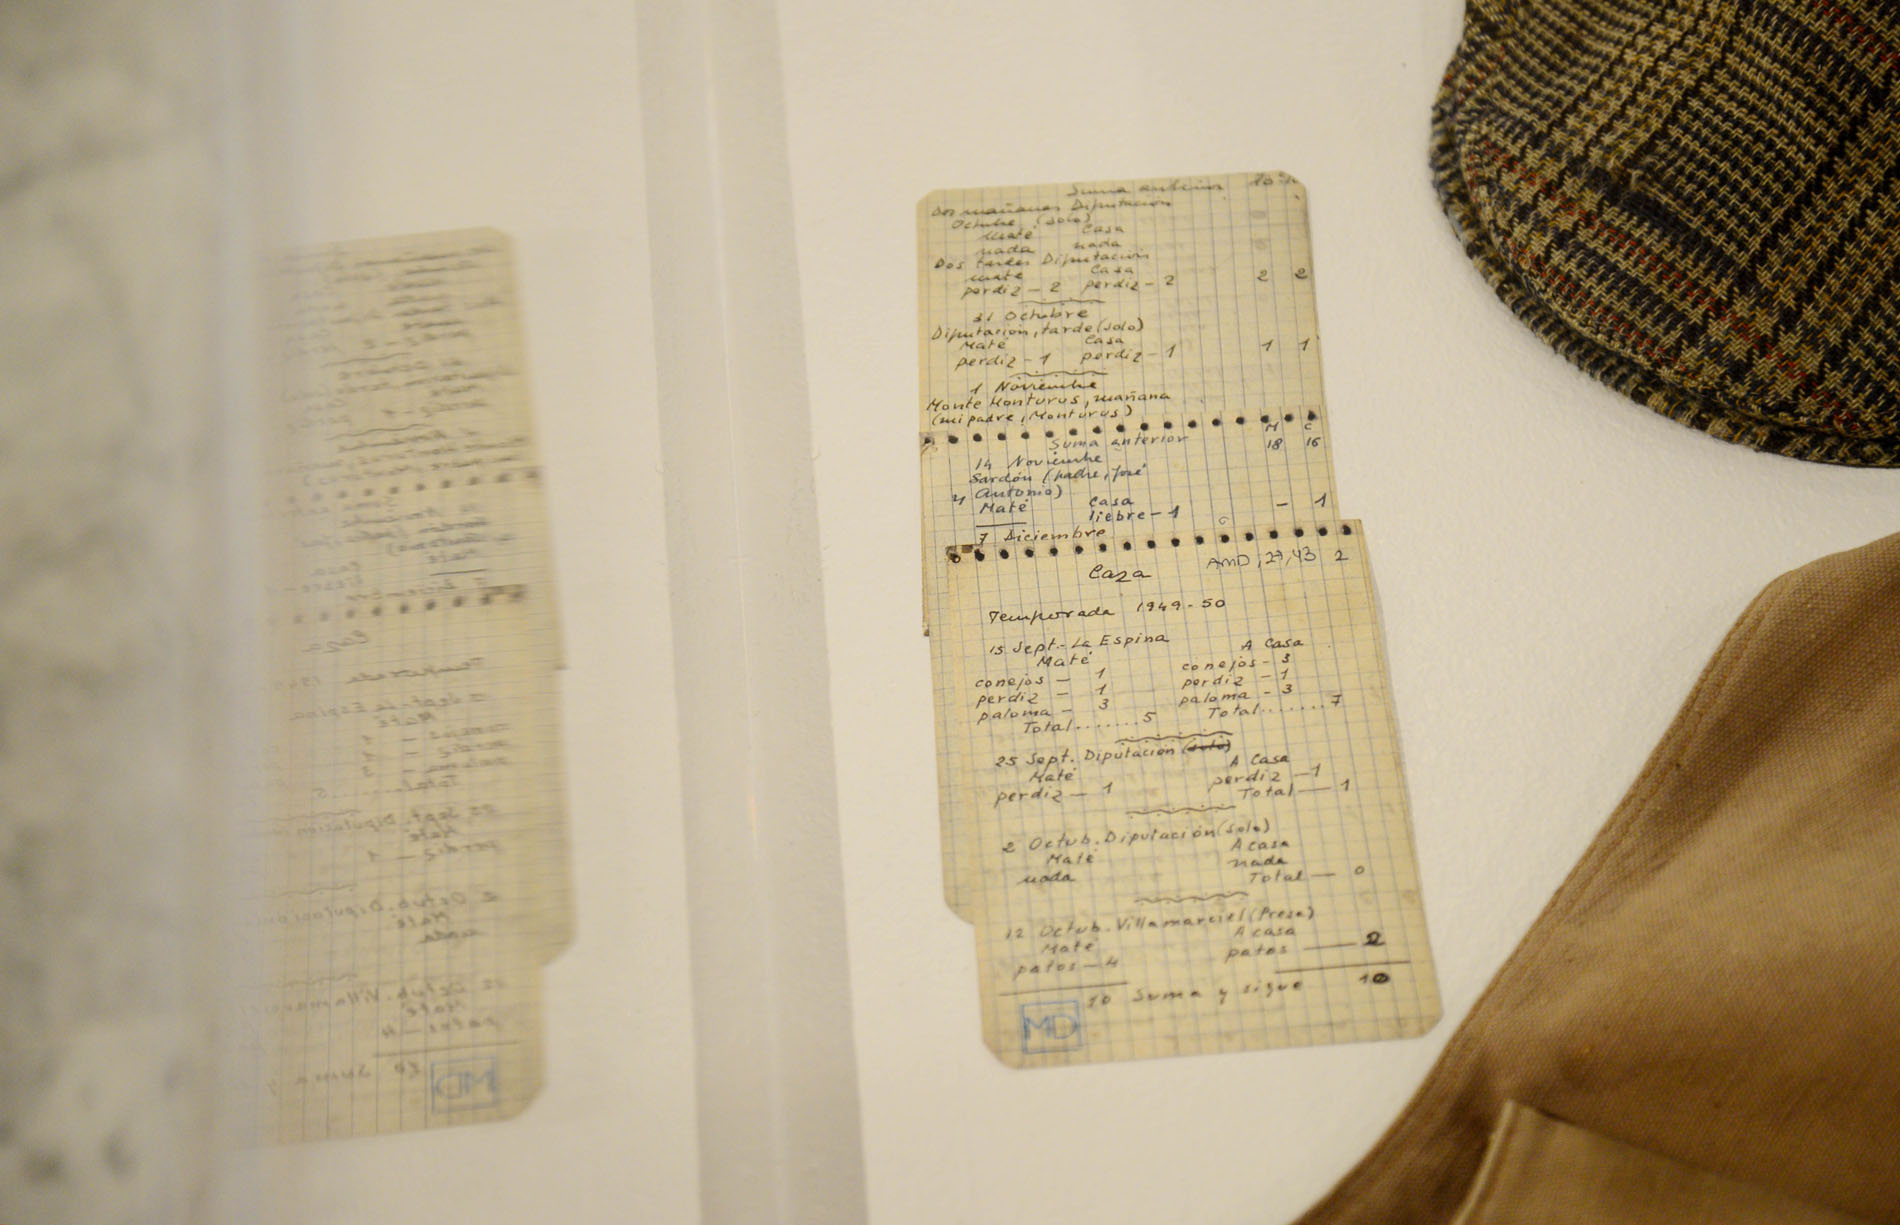 Suma anterior 10
Dos mañanas Diputación
Octubre (solo)
Maté Casa
nada nada
Dos tardes Diputación
maté Casa
perdiz - 2 perdiz - 2 2 2
31 Octubre
Diputación, tarde (solo)
Maté Casa
perdiz - 1 perdiz - 1 1 1
1 Noviembre
Monte Monturus, mañana
(mi padre, Monturus)
M C
Suma anterior 18 16
14 Noviembre
Sardón (padre, José
y Antonio)
Maté Casa
liebre - 1 - 1
7 Diciembre
AMD, 27, 43 2
Caza
Temporada 1949-50
15 Sept.- La Espina
Maté A Casa
conejos - 1 conejos - 3
perdiz - 1 perdiz - 1
paloma - 3 paloma - 3
Total ....... 5 Total ....... 7
25 Sept. Diputación (solo)
Maté A Casa
perdiz - 1 perdiz - 1
Total - 1
2 Octub. Diputación (solo)
Maté A casa
nada nada
Total - 0
12 Octub. Villamarciel (Presa)
Maté A casa
patos - 4 patos - 2
10 Suma y sigue 10
MD